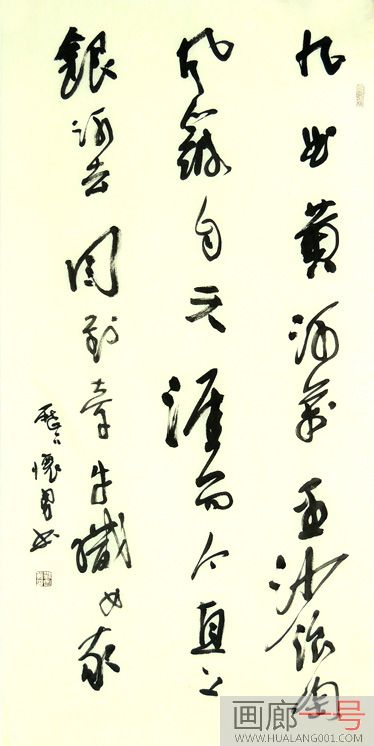 九曲黄河萬里沙浪淘
风簸自天涯而今直上
銀河去同到牵牛織女家
懷勇书
画廊一号
WWW.HUALANG001.COM